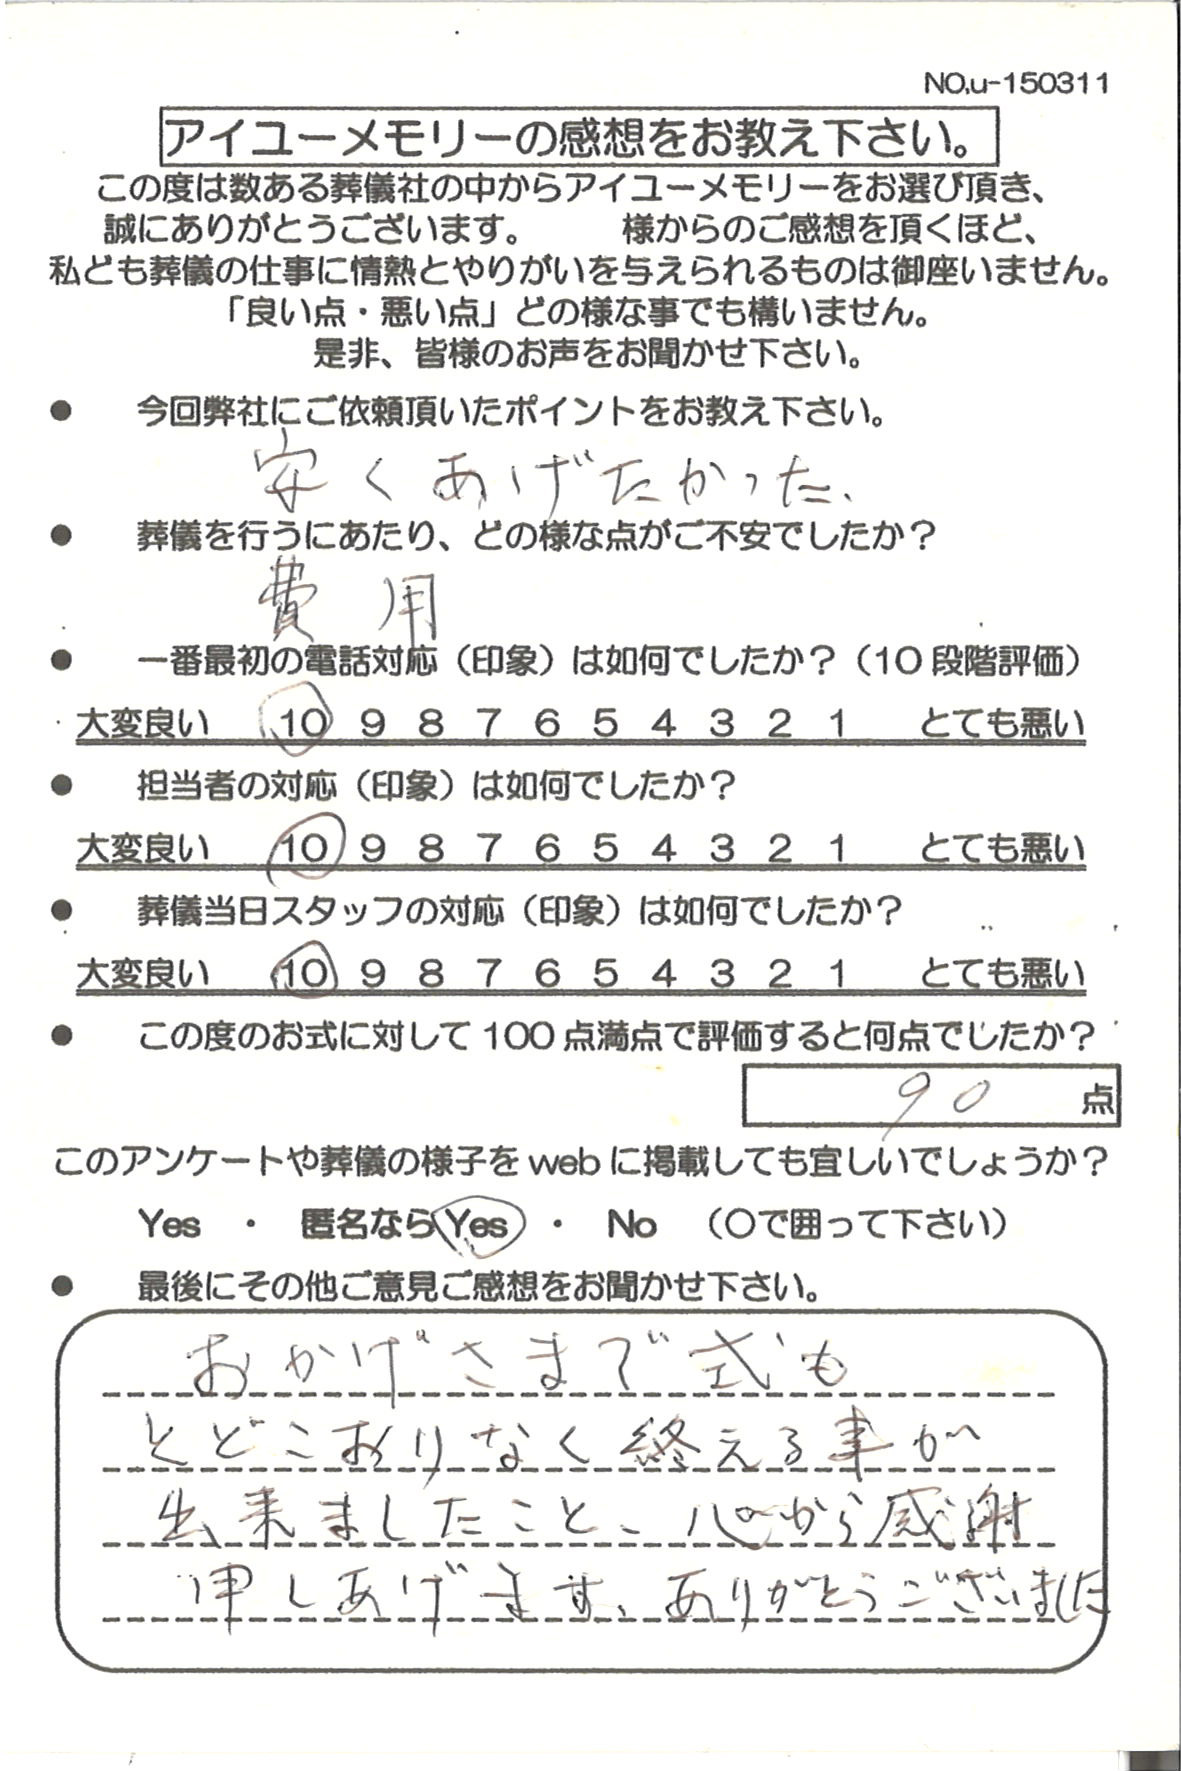 NO,u-150311
アイユーメモリーの感想をお教え下さい。
この度は数ある葬儀社の中からアイユーメモリーをお選び頂き、
誠にありがとうございます。　　　様からのご感想を頂くほど、
私ども葬儀の仕事に情熱とやりがいを与えられるものは御座いません。
「良い点・悪い点」どの様な事でも構いません。
是非、皆様のお声をお聞かせ下さい。
● 今回弊社にご依頼頂いたポイントをお教え下さい。
安くあげたかった、
● 葬儀を行うにあたり、どの様な点がご不安でしたか？
費用
● 一番最初の電話対応（印象）は如何でしたか？（10 段階評価）
大変良い 10 9 8 7 6 5 4 3 2 1 とても悪い
● 担当者の対応（印象）は如何でしたか？
大変良い 10 9 8 7 6 5 4 3 2 1 とても悪い
● 葬儀当日スタッフの対応（印象）は如何でしたか？
大変良い 10 9 8 7 6 5 4 3 2 1 とても悪い
● この度のお式に対して 100 点満点で評価すると何点でしたか？
90 点
このアンケートや葬儀の様子を web に掲載しても宜しいでしょうか？
Yes ・ 匿名なら Yes ・ No （〇で囲って下さい）
● 最後にその他ご意見ご感想をお聞かせ下さい。
おかげさまで式も
とどこおりなく終える事が
出来ましたこと、心から感謝
申しあげます、ありがとうございました